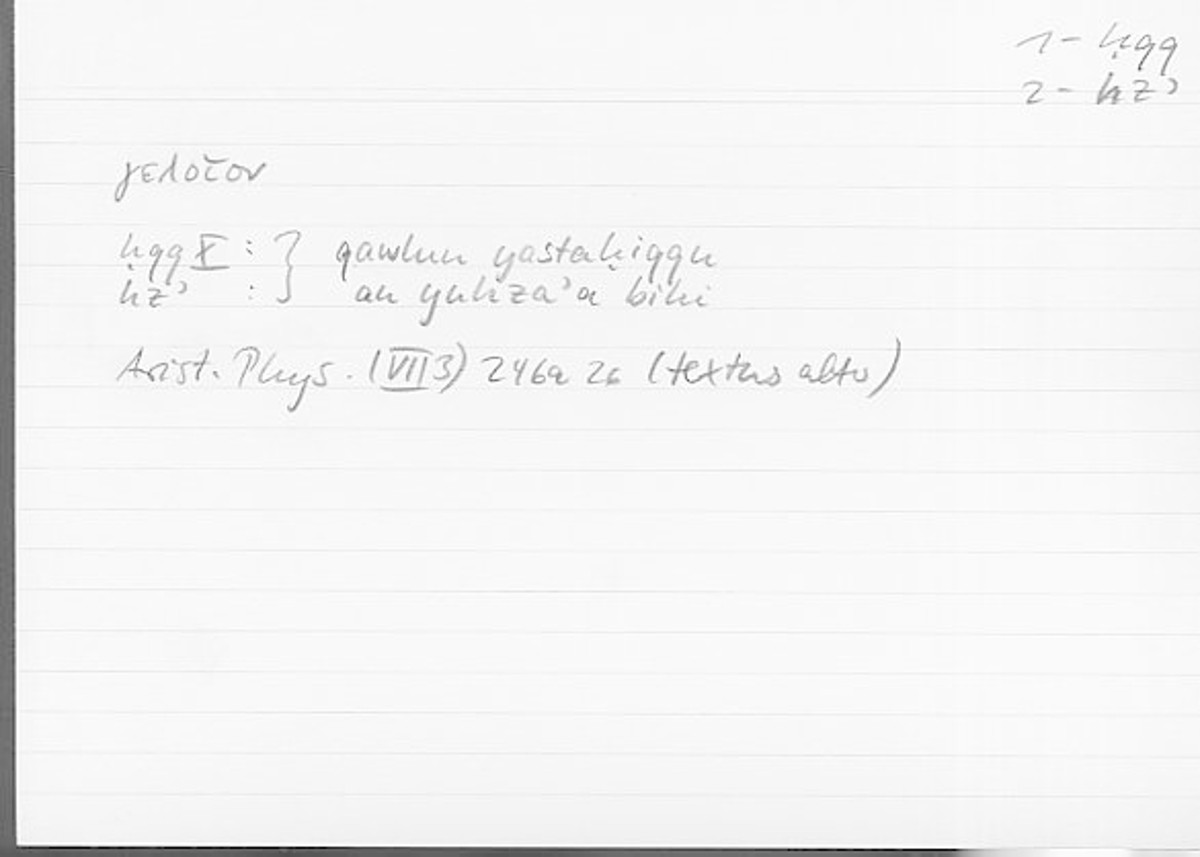 1 - ḥqq
2 - hzʾ
γελοῖον
ḥqq X : } qawlun yastaḥiqqu
hzʾ : an yuhzaʾa bihi
Arist. Phys. (VII 3) 246a 26 (textus alter)